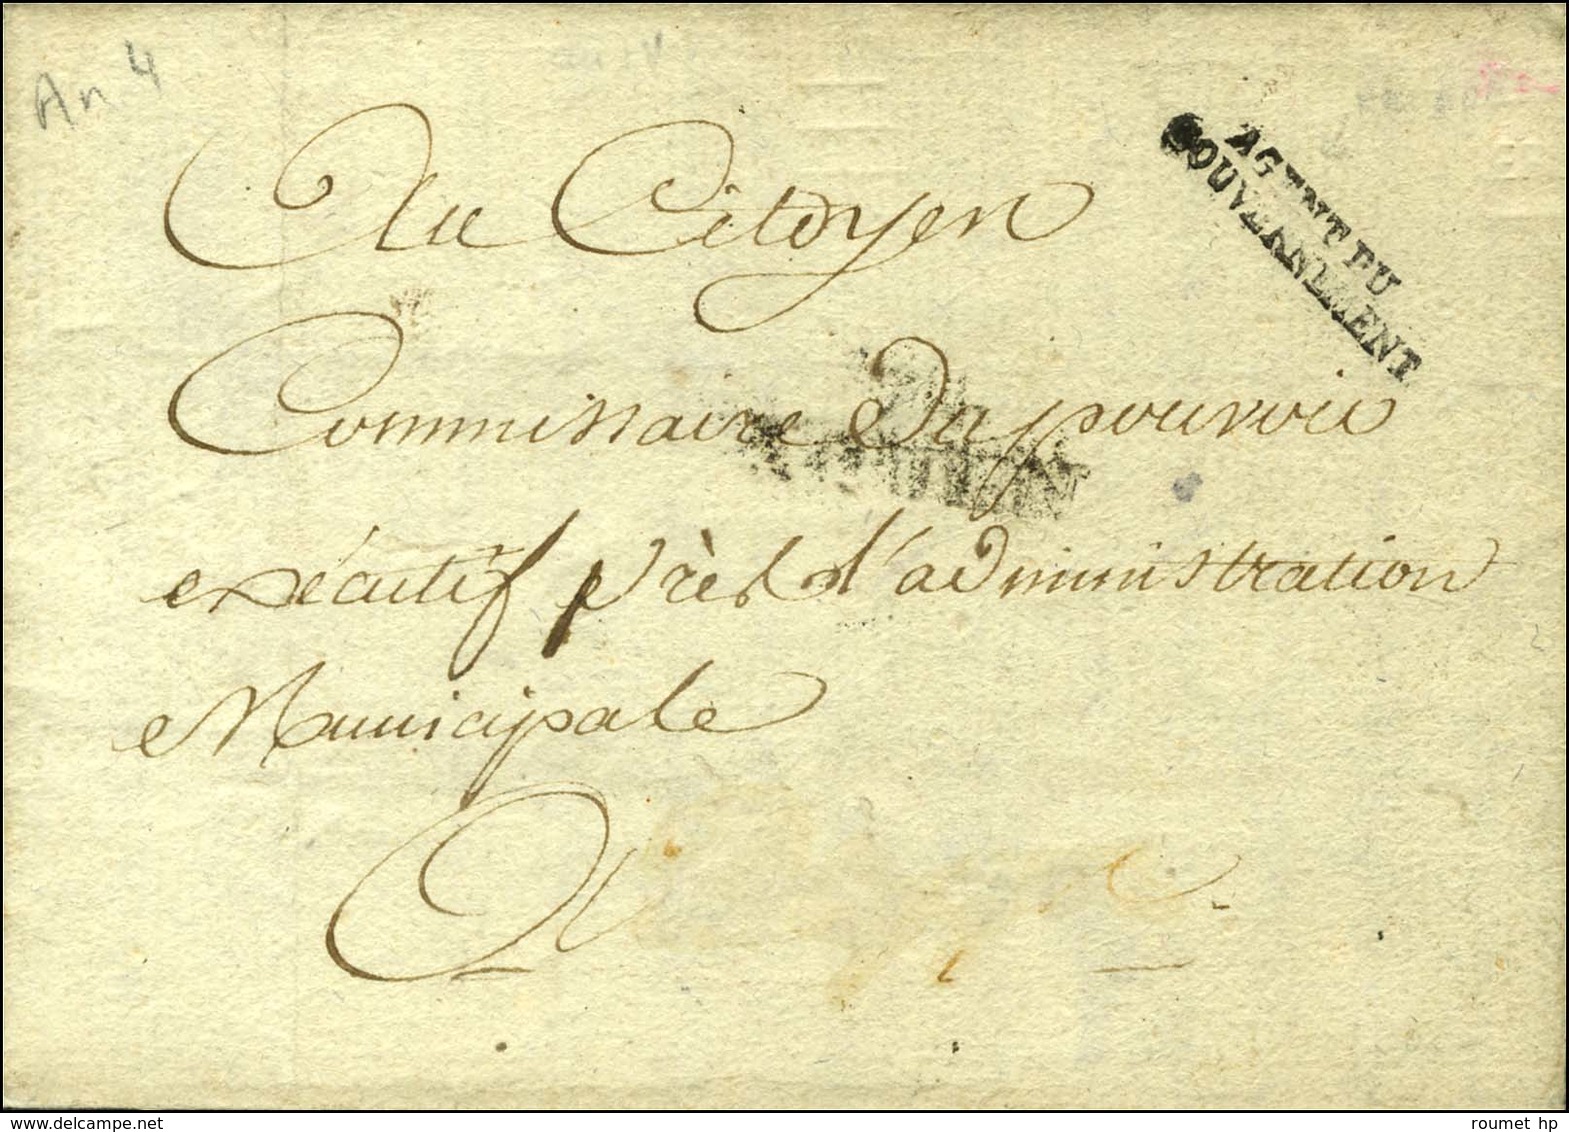 An 4
AGENT DU
GOUVERNEMENT
Au Citoyen
Commissaire du pouvoir
exécutif près l'administration
Municipale
A
delcampe.net
roumet hp